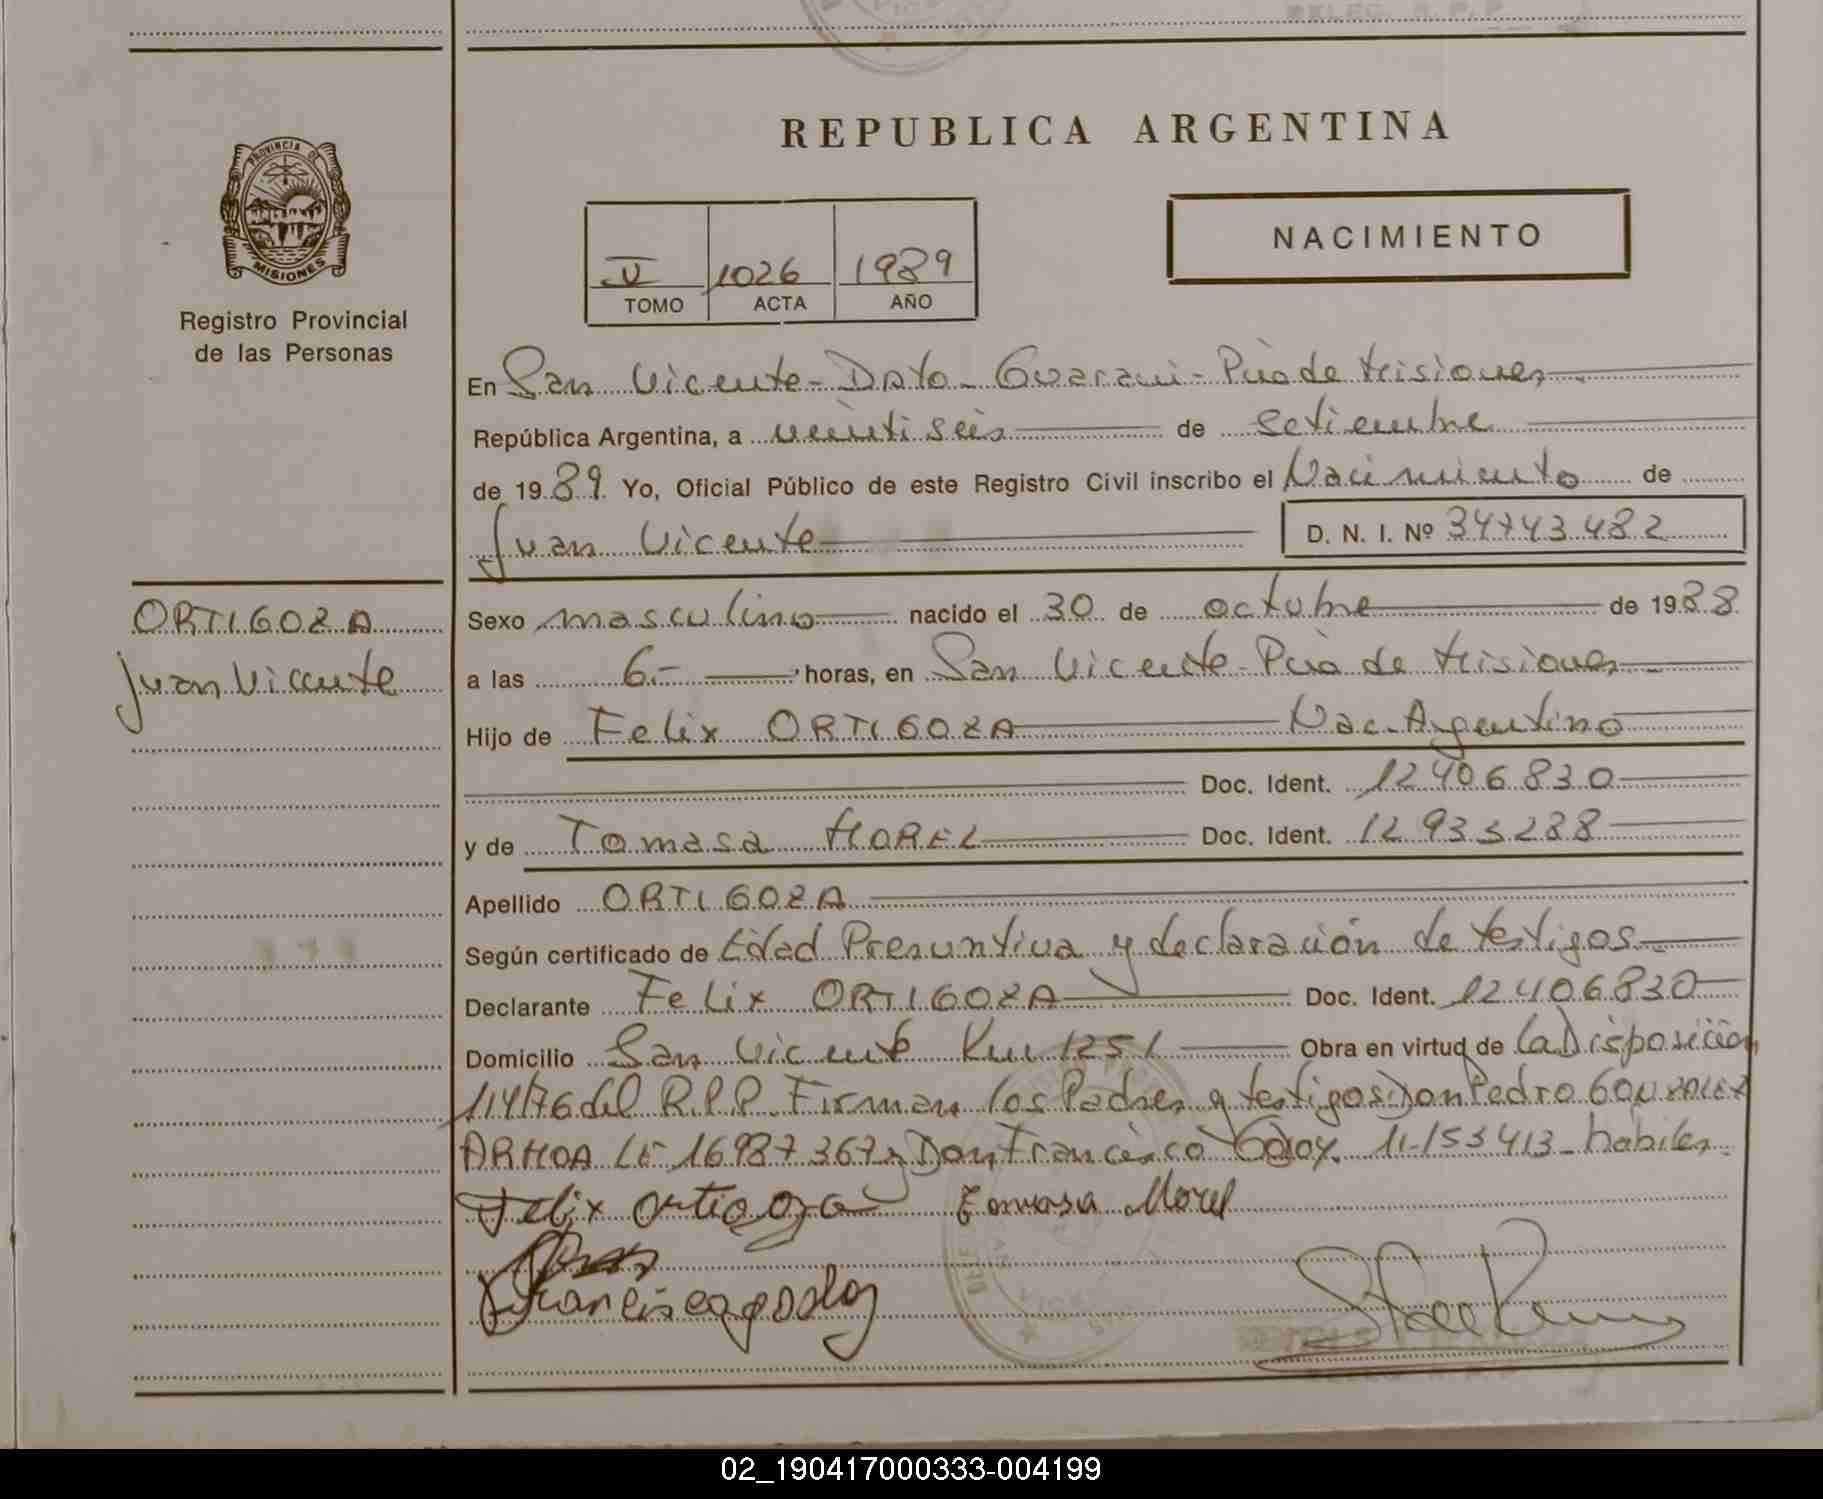 REPUBLICA ARGENTINA
PROVINCIA DE
MISIONES
Registro Provincial
de las Personas
NACIMIENTO
V 1026 1989
TOMO ACTA AÑO
En San Vicente - Dpto - Guarani - Pcia de Misiones
República Argentina, a veinti seis de setiembre
de 1989. Yo, Oficial Público de este Registro Civil inscribo el Nacimiento de
Juan Vicente D. N. I. Nº 34743482
ORTIGOZA
Juan Vicente
Sexo masculino nacido el 30 de octubre de 1988
a las 6.- horas, en San Vicente - Pcia de Misiones
Hijo de Felix ORTIGOZA Nac. Argentino
Doc. Ident. 12406830
y de Tomasa MOREL Doc. Ident. 12933288
Apellido ORTIGOZA
Según certificado de Edad Presuntiva y declaración de testigos
Declarante Felix ORTIGOZA Doc. Ident. 12406830
Domicilio San Vicente Km 1251 Obra en virtud de la Disposición
114/76 del R.P.P. Firman los Padres y testigos Don Pedro GONZALEZ
ARMOA LE 16987367 y Don Francisco Godoy. 11.153413 - habiles
Felix ortigoza Tomasa Morel
Francisco godoy
02_190417000333-004199